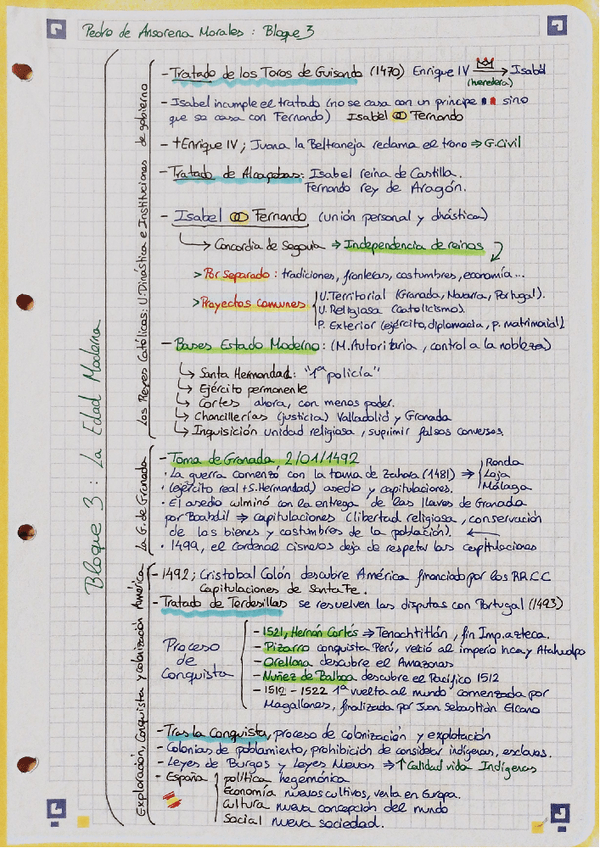 Pedro de Ansorena Morales: Bloque 3
Bloque 3: La Edad Moderna
Los Reyes Católicos: U. Dinástica e Instituciones de gobierno
- Tratado de los Toros de Guisando (1470) Enrique IV → Isabel
(heredera)
- Isabel incumple el tratado (no se casa con un príncipe sino
que se casa con Fernando) Isabel Fernando
- †Enrique IV; Juana la Beltraneja reclama el trono ⇒ G.Civil
- Tratado de Alcaçobas: Isabel reina de Castilla.
Fernando rey de Aragón.
- Isabel Fernando (unión personal y dinástica)
→ Concordia de Segovia → Independencia de reinos
> Por separado: tradiciones, fronteras, costumbres, economía...
> Proyectos comunes
U. Territorial (Granada, Navarra, Portugal).
U. Religiosa (catolicismo).
P. Exterior (ejército, diplomacia, p. matrimonial)
- Bases Estado Moderno: (M. Autoritaria, control a la nobleza)
→ Santa Hermandad: "1ª policía"
→ Ejército permanente
→ Cortes ahora, con menos poder.
→ Chancillerías (justicia) Valladolid y Granada
→ Inquisición unidad religiosa, suprimir falsos conversos.
La G. de Granada
- Toma de Granada 2/01/1492
· La guerra comenzó con la toma de Zahara (1481) ⇒
Ronda
Loja
Málaga
· (ejército real + S. Hermandad) asedio y capitulaciones.
· El asedio culminó con la entrega de las llaves de Granada
por Boabdil → capitulaciones (libertad religiosa, conservación
de los bienes y costumbres de la población).
· 1499, el cardenal cisneros deja de respetar las capitulaciones
Exploración, Conquista y colonización América
- 1492; Cristobal Colón descubre América financiado por los RR.CC
Capitulaciones de Santa Fe.
- Tratado de Tordesillas se resuelven las disputas con Portugal (1493)
Proceso
de
Conquista
- 1521, Hernán Cortés → Tenochtitlán, fin Imp. azteca.
- Pizarro conquista Perú, venció al imperio Inca y Atahualpa
- Orellana descubre el Amazonas
- Nuñez de Balboa descubre el Pacífico 1512
- 1512 - 1522 1ª vuelta al mundo comenzada por
Magallanes, finalizada por Juan Sebastián Elcano
- Tras la Conquista, proceso de colonización y explotación
- Colonias de poblamiento, prohibición de considerar indígenas, esclavos.
- Leyes de Burgos y Leyes Nuevas ⇒ ↑Calidad vida Indígenas
- España
política hegemónica
Economía nuevos cultivos, venta en Europa.
Cultura nueva concepción del mundo
Social nueva sociedad.